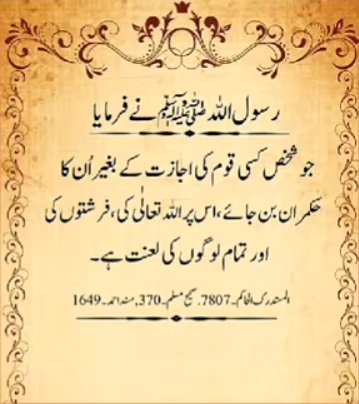 رسول اللہ ﷺ نے فرمایا
جو شخص کسی قوم کی اجازت کے بغیر اُن کا
حکمران بن جائے، اس پر اللہ تعالٰی کی، فرشتوں کی
اور تمام لوگوں کی لعنت ہے۔
المستدرک الحاکم۔7807، صحیح مسلم۔370، مسند احمد۔1649